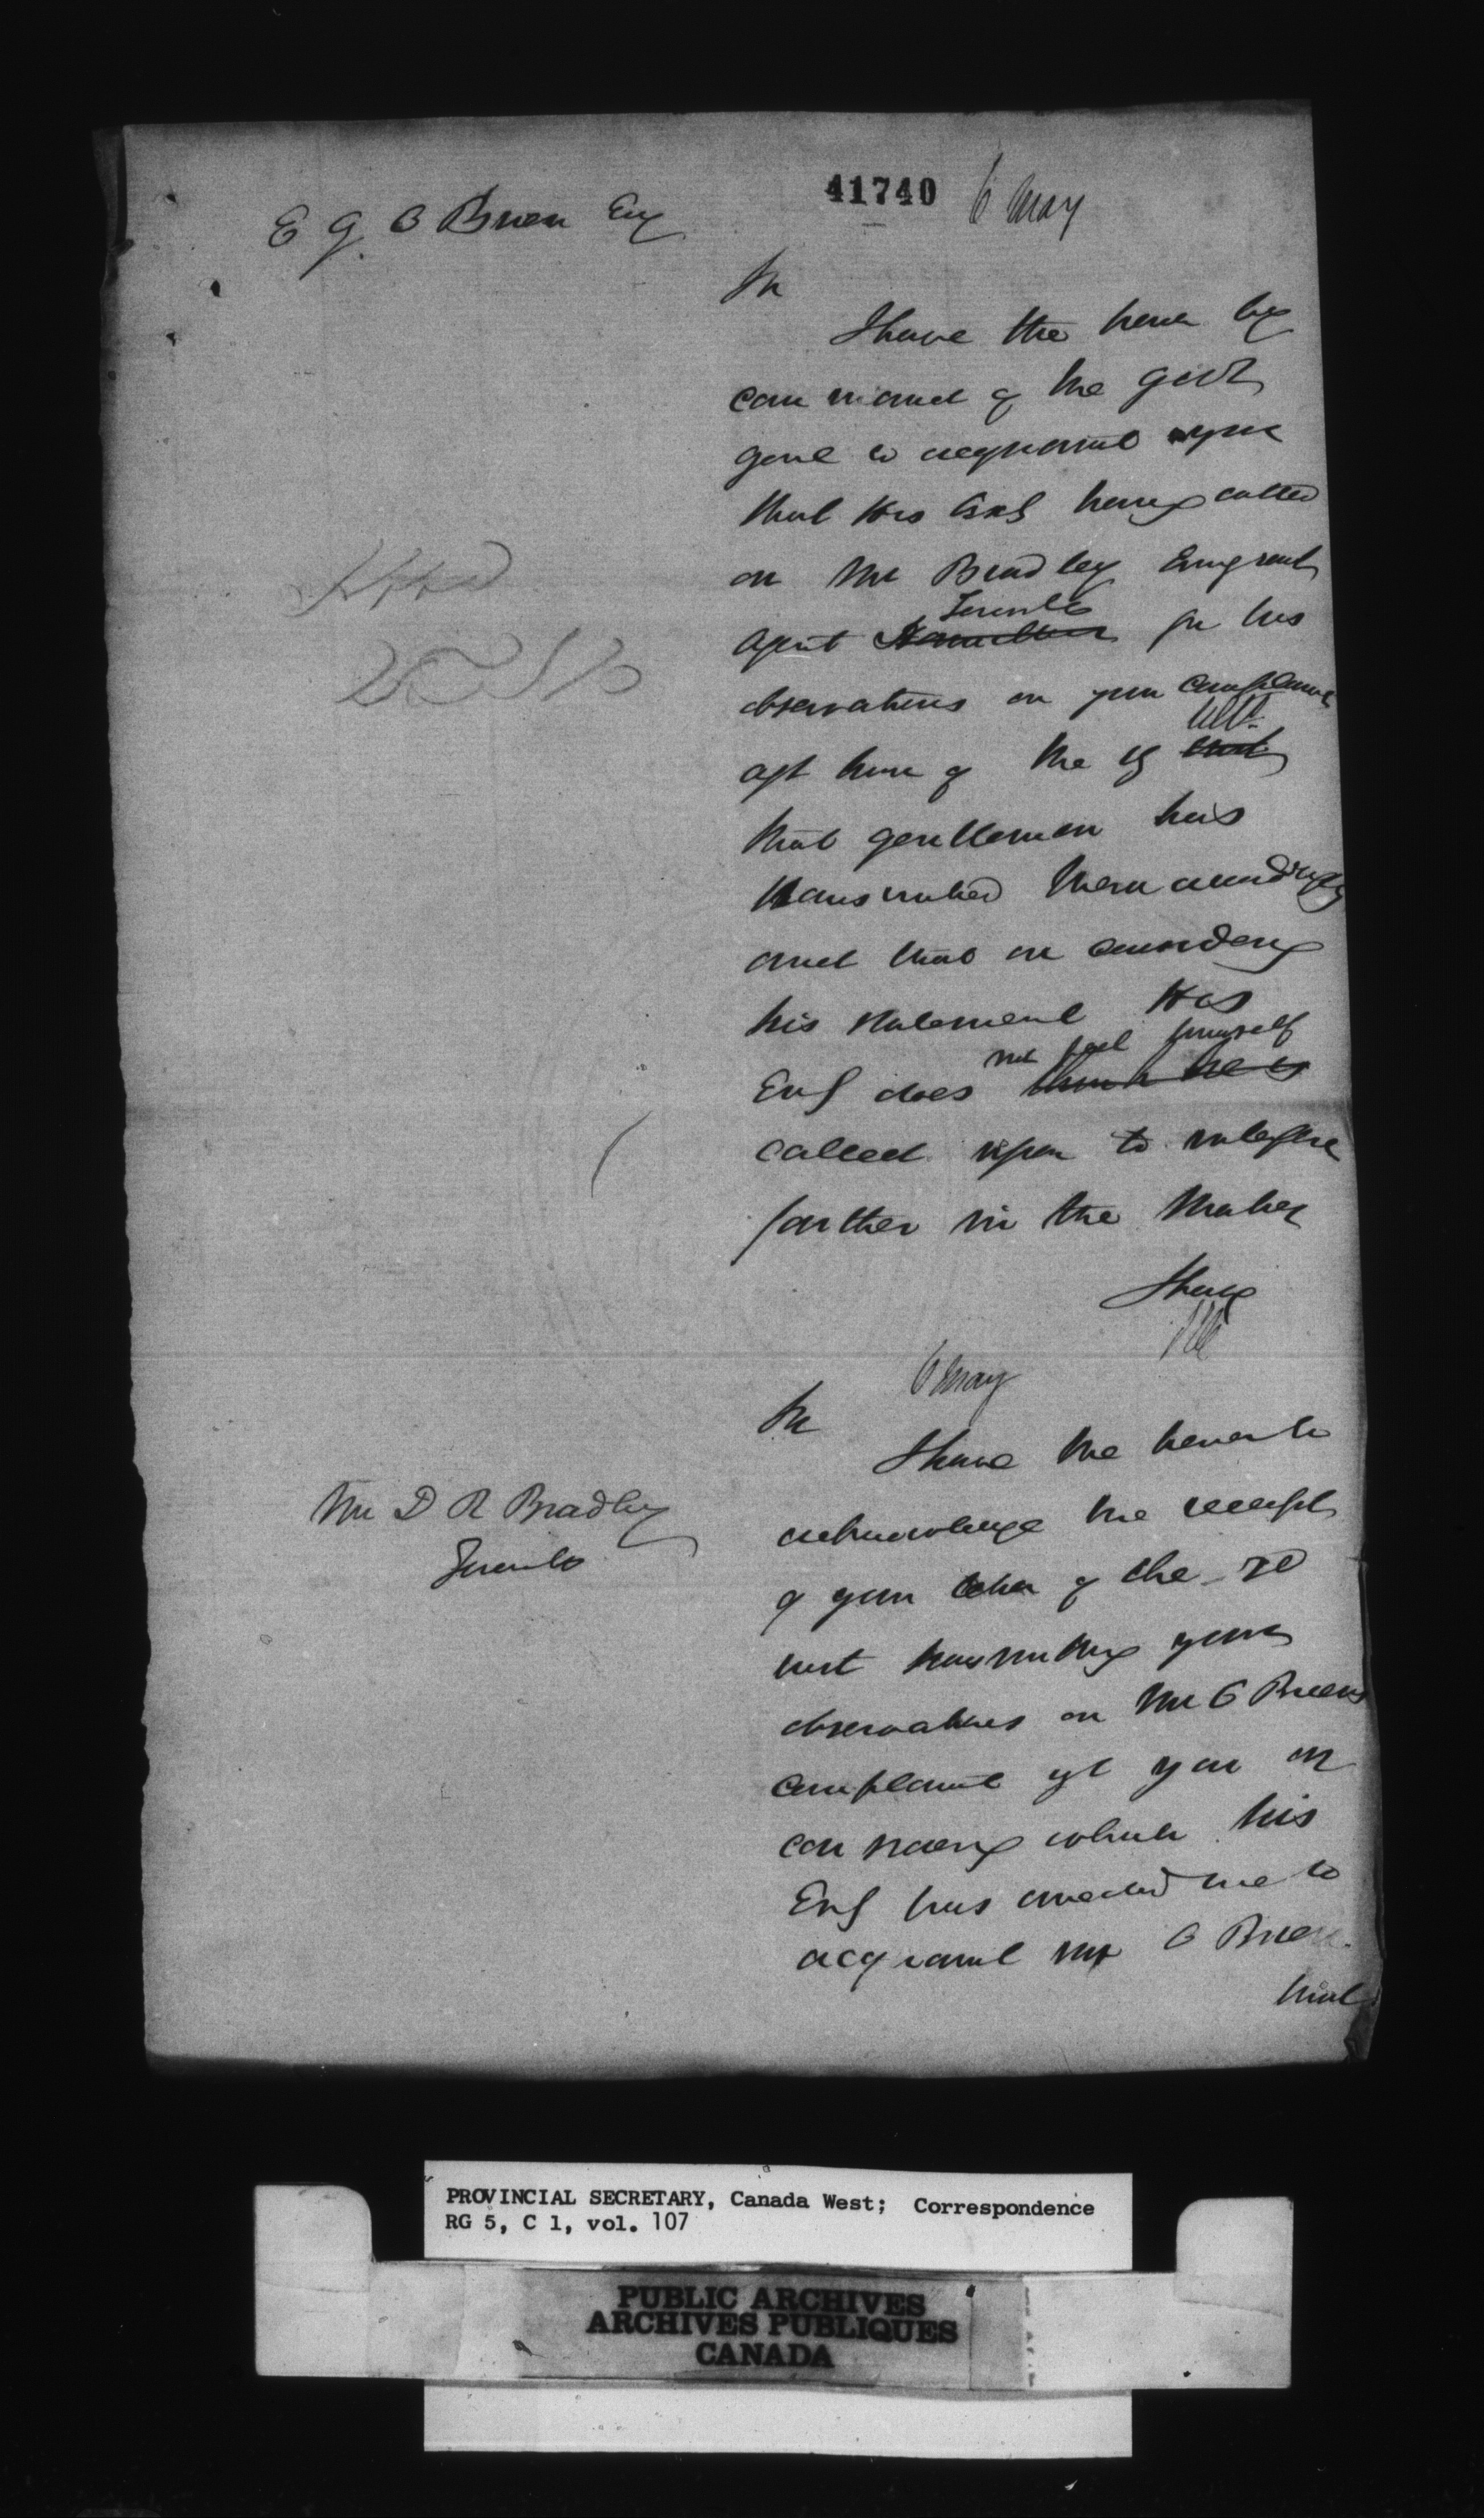 41740 6 May
E G O Brien Esq
Sir
I have the honor by
command of the Govr
Genl to acquaint you
that His Exy having called
on Mr Bradley Emigrant
Agent Hamilton Toronto for his
observations on your complaint
agt him of the ult.
that gentleman has
transmitted them accordingly
and that on considering
his statement His
Exy does not feel himself think he is
called upon to interfere
further in the Matter
I have
6 May
Sir
I have the honor to
Mr D R Bradley
Toronto
acknowledge the receipt
of your letter of the 3d
inst transmitting your
observations on Mr O Briens
complaint agt you on
considering which His
Exy has directed me to
acquaint Mr O Brien
that
PROVINCIAL SECRETARY, Canada West; Correspondence
RG 5, C 1, vol. 107
PUBLIC ARCHIVES
ARCHIVES PUBLIQUES
CANADA